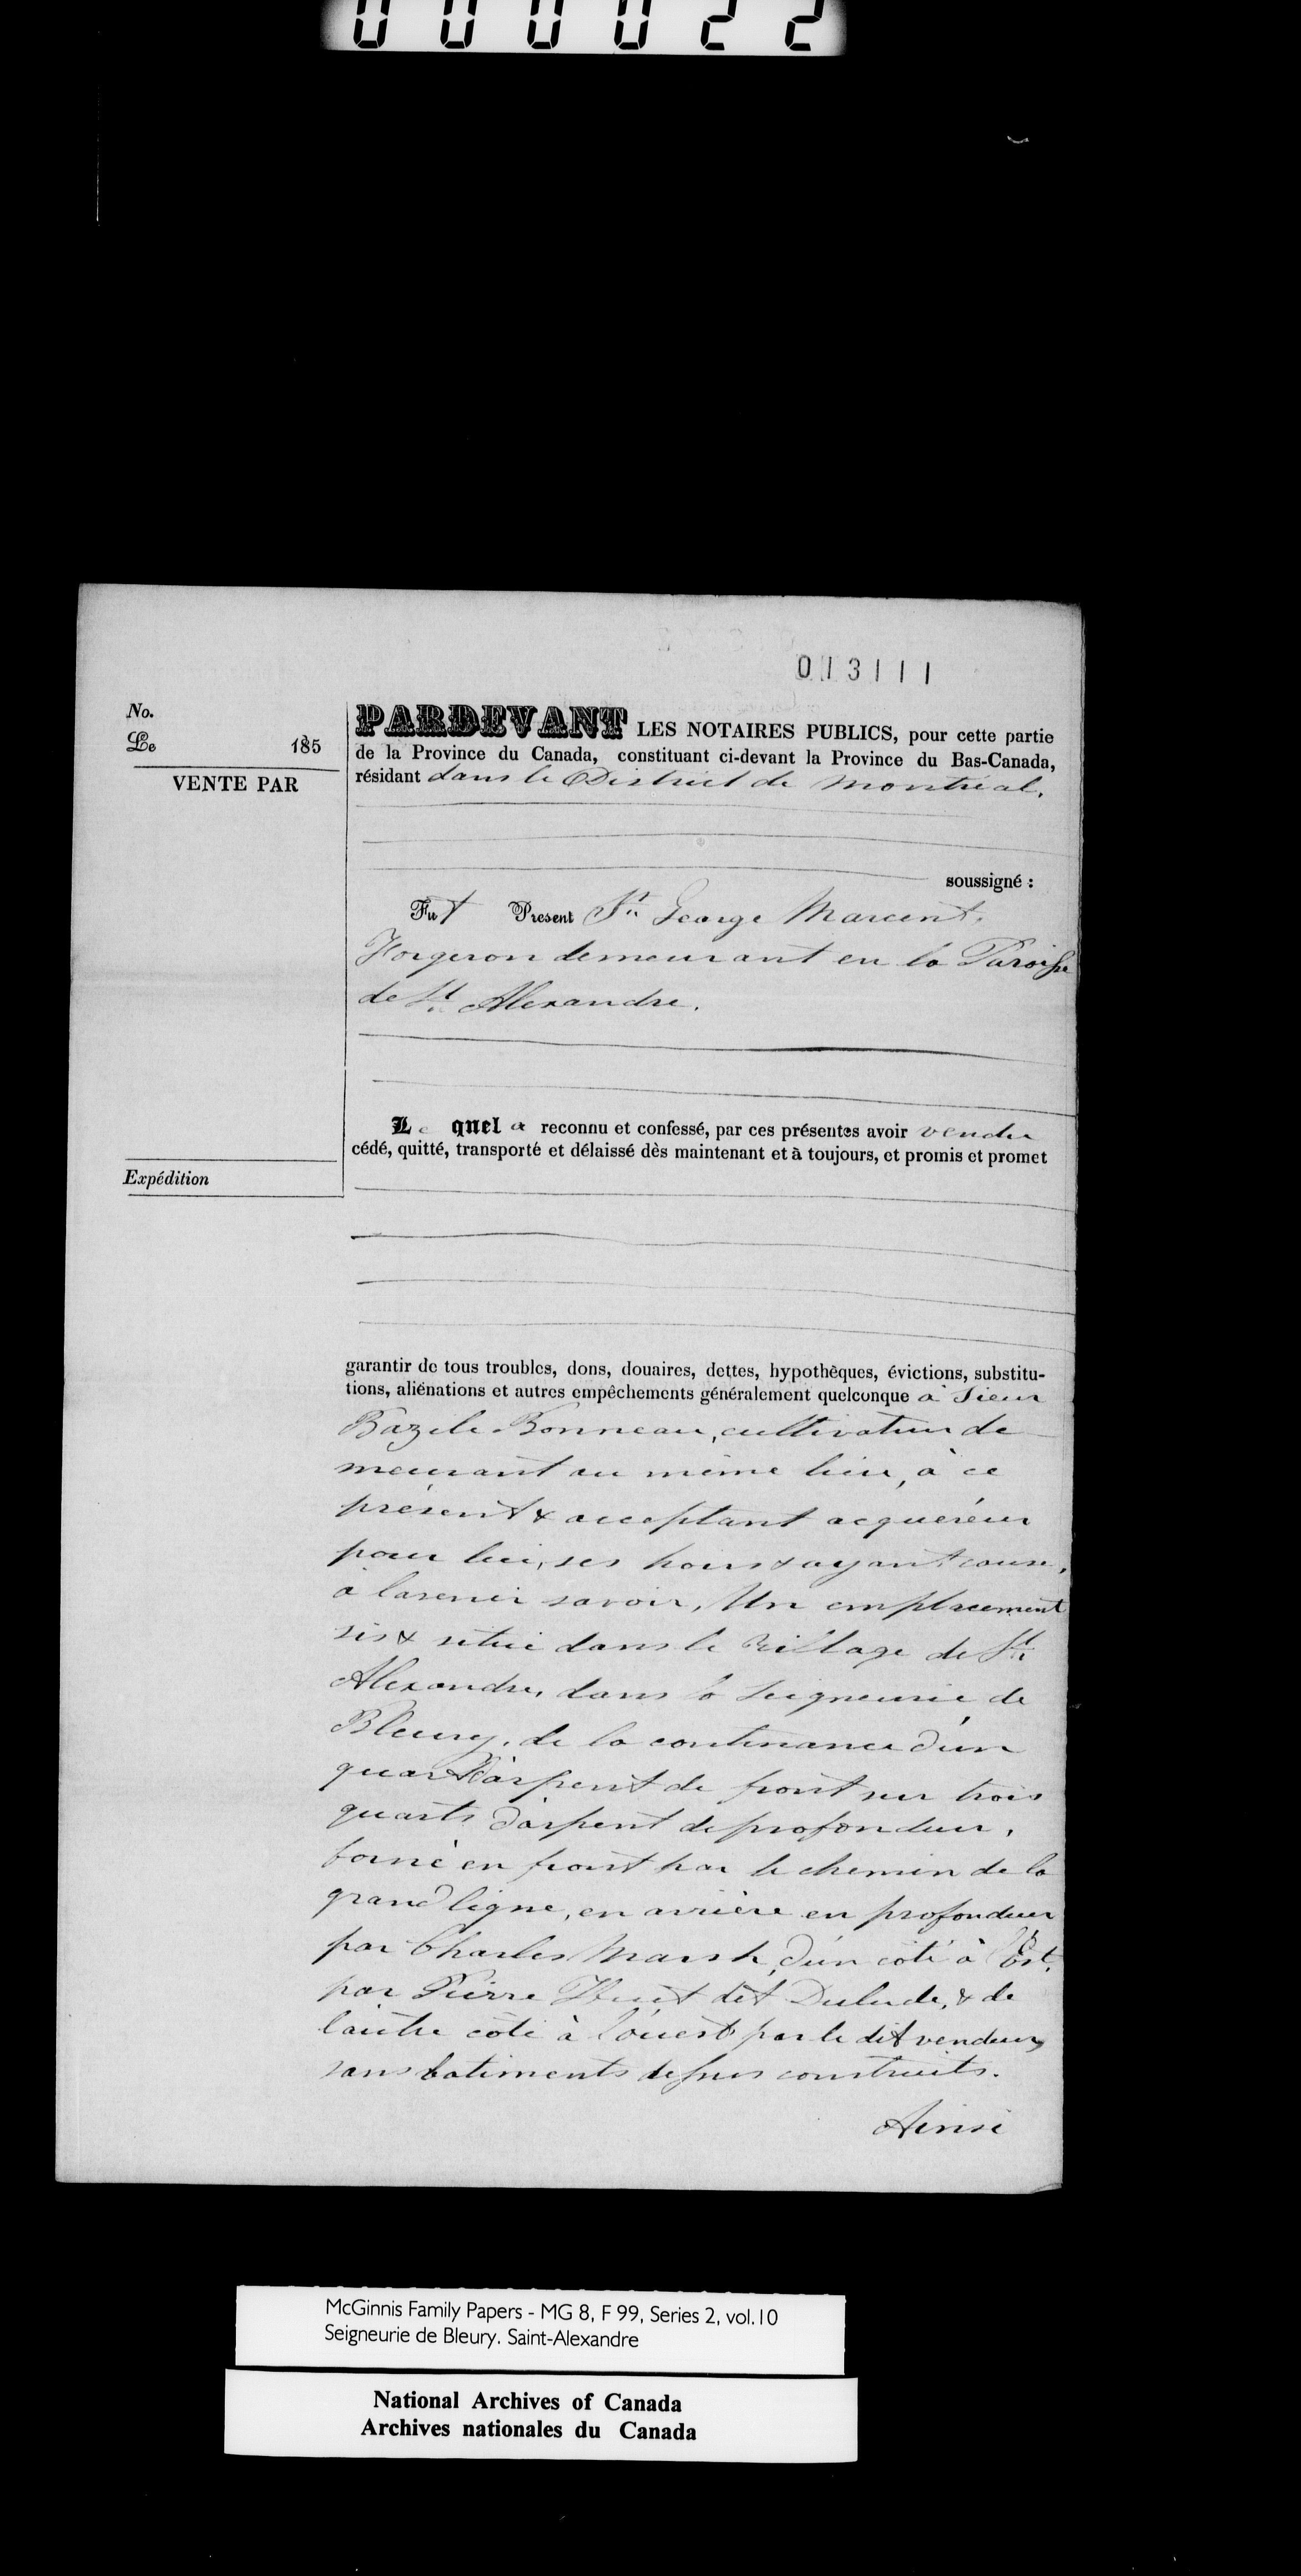 000022
013111
No.
Le 185
VENTE PAR
Expédition
PARDEVANT LES NOTAIRES PUBLICS, pour cette partie
de la Province du Canada, constituant ci-devant la Province du Bas-Canada,
résidant dans le District de Montréal.
soussigné :
Fut Present Sr. George Marcent,
Forgeron demeurant en la Paroisse
de St. Alexandre.
Le quel a reconnu et confessé, par ces présentes avoir vendu
cédé, quitté, transporté et délaissé dès maintenant et à toujours, et promis et promet
garantir de tous troubles, dons, douaires, dettes, hypothèques, évictions, substitu-
tions, aliénations et autres empêchements généralement quelconque à Sieur
Bazile Bonneau, cultivateur de
meurant au même lieu, à ce
présent & acceptant acquéreur
pour lui, ses hoirs & ayant cause,
à l'avenir savoir, Un emplacement
sis & situé dans le Village de St.
Alexandre, dans la Seigneurie de
Bleury, de la contenance d'un
quart d'arpent de front sur trois
quarts d'arpent de profondeur,
borné en front par le chemin de la
grand ligne, en arrière en profondeur
par Charles Marsh, d'un côté à l'Est,
par Pierre Huet dit Dulude, & de
l'autre côté à l'ouest par le dit vendeur,
sans batiments dessus construits.
Ainsi
McGinnis Family Papers - MG 8, F 99, Series 2, vol.10
Seigneurie de Bleury. Saint-Alexandre
National Archives of Canada
Archives nationales du Canada